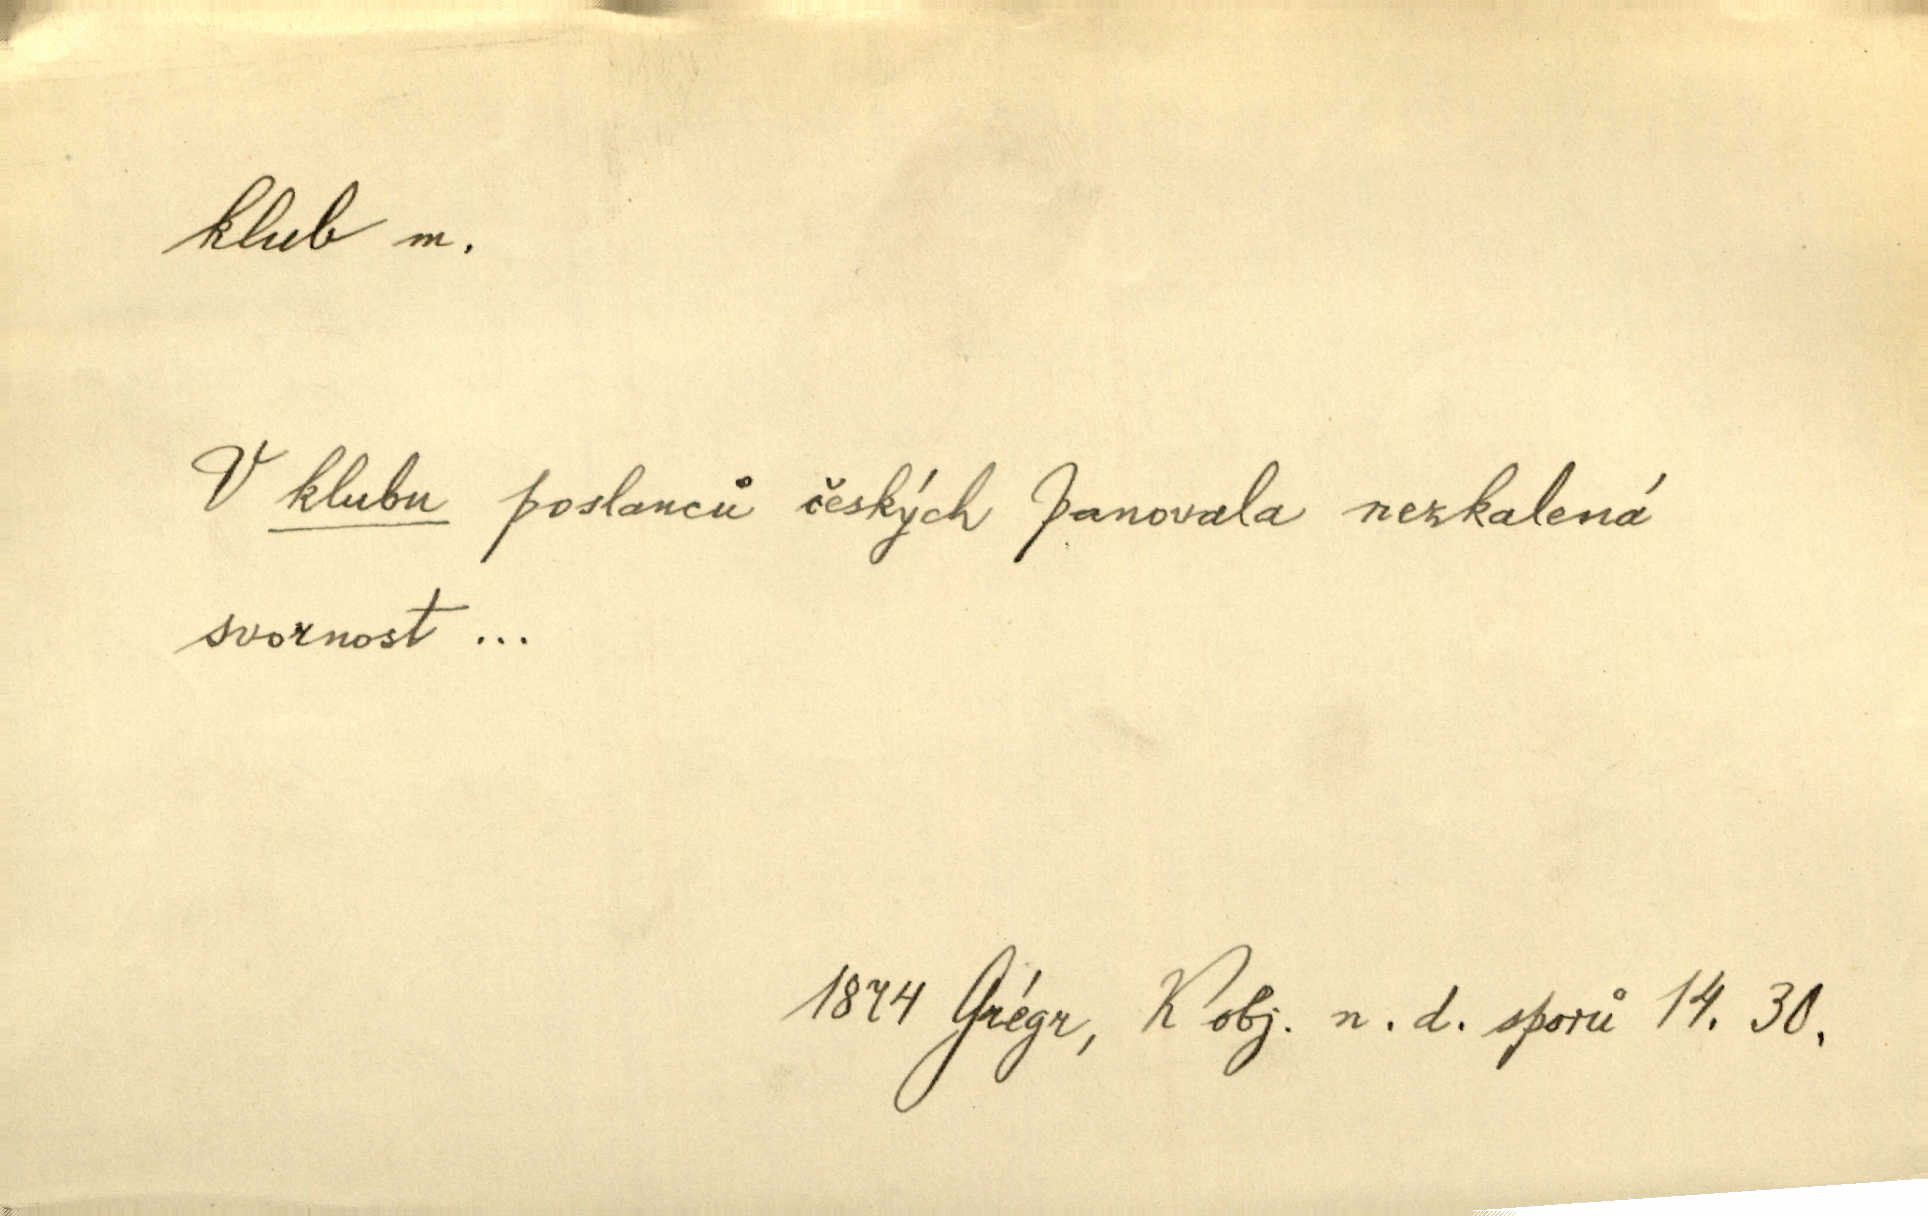 klub m.
V klubu poslanců českých panovala nezkalená
svornost ...
1874 Grégr, K obj. n. d. sporů 14. 30.